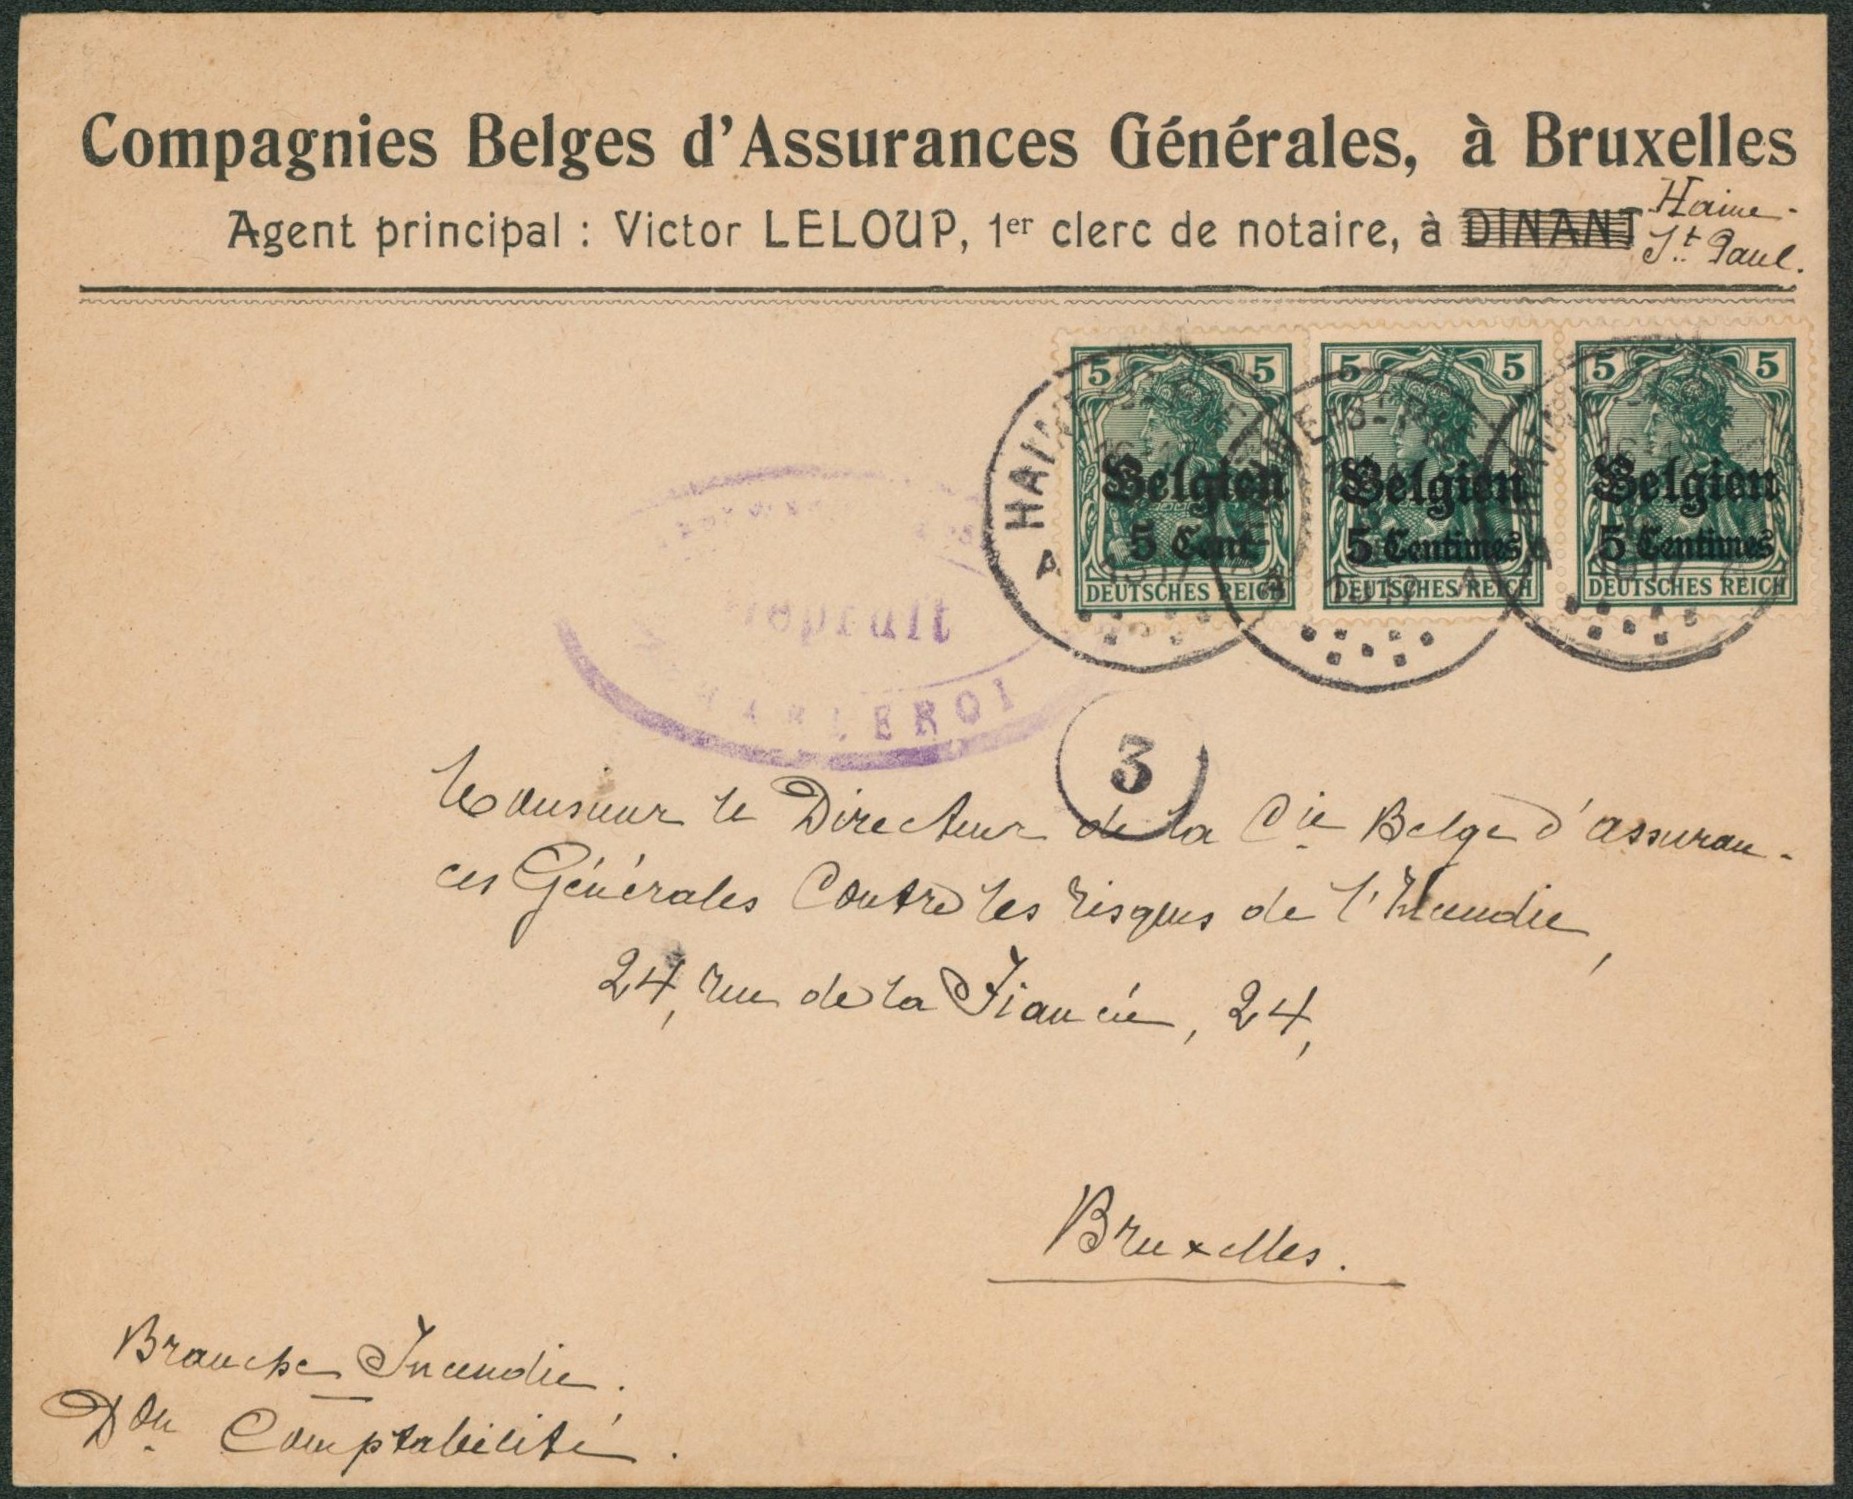 Compagnies Belges d'Assurances Générales, à Bruxelles
Agent principal : Victor LELOUP, 1er clerc de notaire, à DINANT Haine-
St. Paul.
5 5 5 5 5 5
HAINE
Belgien Belgien Belgien
5 Cent 5 Centimes 5 Centimes
DEUTSCHES REICH DEUTSCHES REICH DEUTSCHES REICH
Geprüft
CHARLEROI
3
Monsieur le Directeur de la Cie Belge d'assuran-
ces Générales Contre les risques de l'Incendie,
24, rue de la Fiancée, 24,
Bruxelles.
Branche Incendie.
Don Comptabilité.